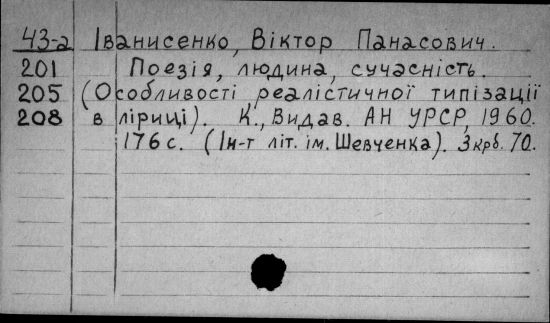 43-а Іванисенко, Віктор Панасович.
201 Поезія, людина, сучасність.
205 (Особливості реалістичної типізації
208 в ліриці). К., Видав. АН УРСР, 1960.
176 с. (Ін-т літ. ім. Шевченка). 3 крб. 70.